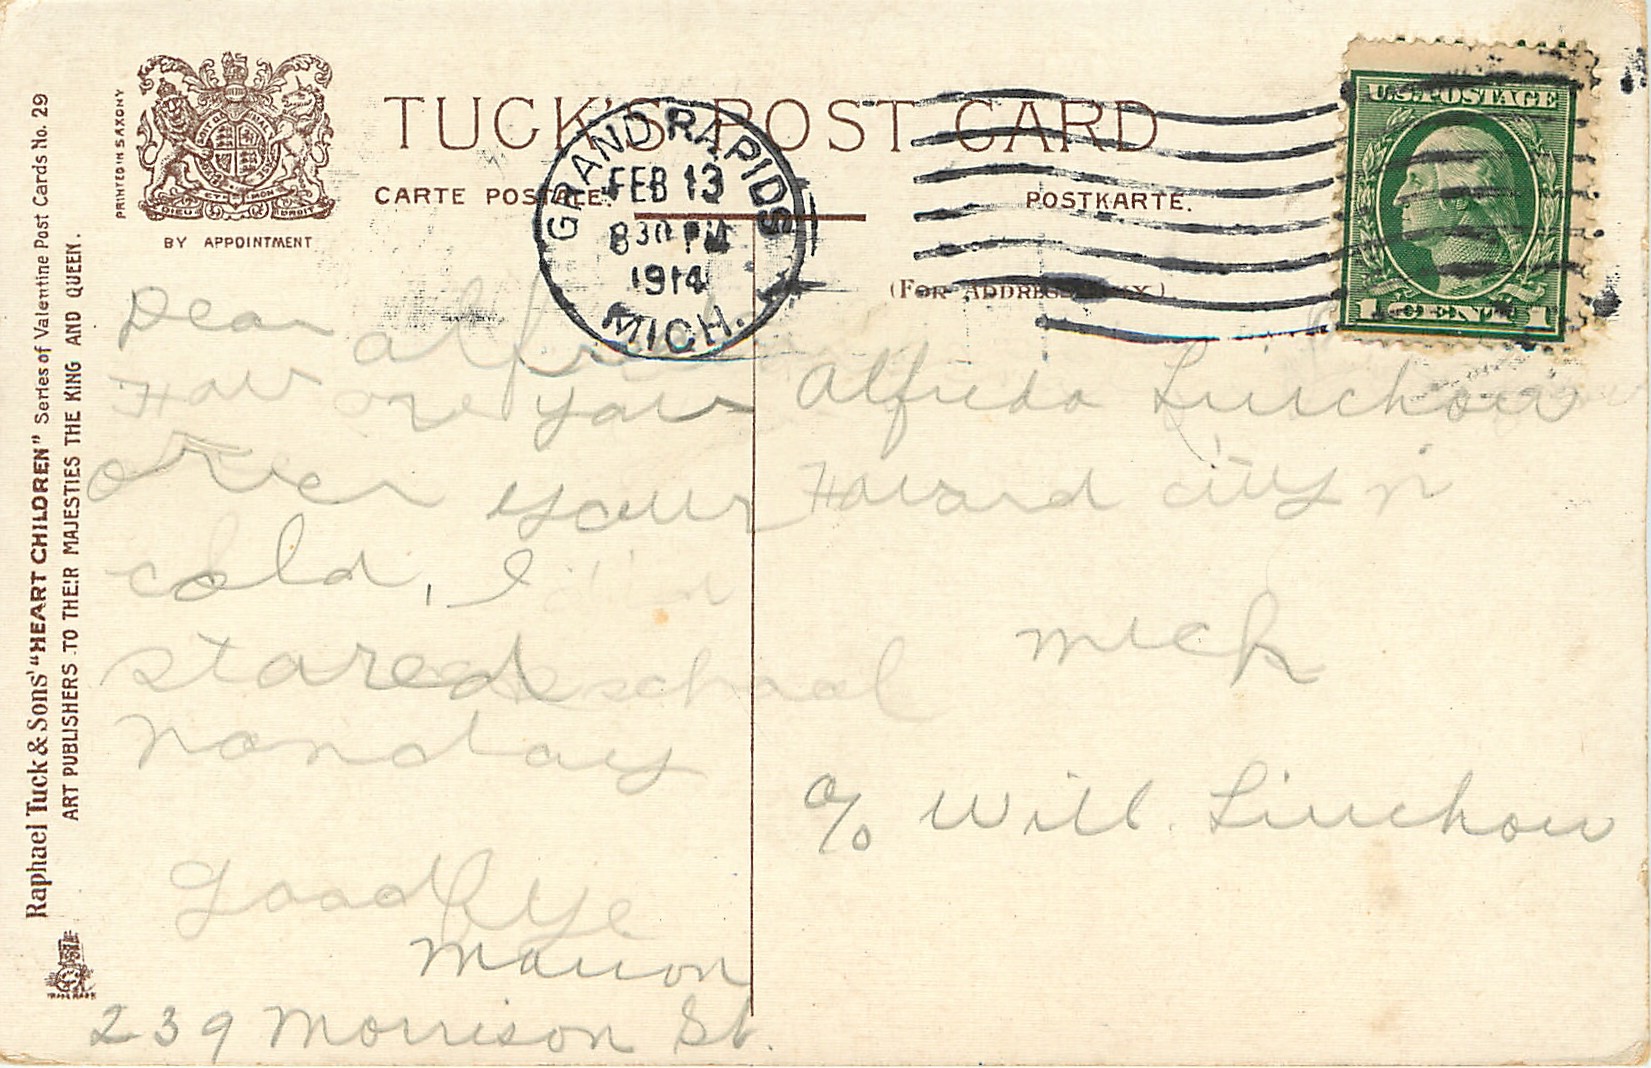 PRINTED IN SAXONY
BY APPOINTMENT
TUCK'S POST CARD
CARTE POSTALE.
POSTKARTE.
(FOR ADDRESS ONLY.)
GRAND RAPIDS
FEB 13
830 PM
1914
MICH.
U.S. POSTAGE
1 CENT 1
Raphael Tuck & Sons' "HEART CHILDREN" Series of Valentine Post Cards No. 29
ART PUBLISHERS TO THEIR MAJESTIES THE KING AND QUEEN.
TRADE MARK
Dear alfreda
How are you
over your
cold, I
stared school
monday
Good bye
Marion
239 Morrison St.
Alfreda
Howard city
mich
c/o Will